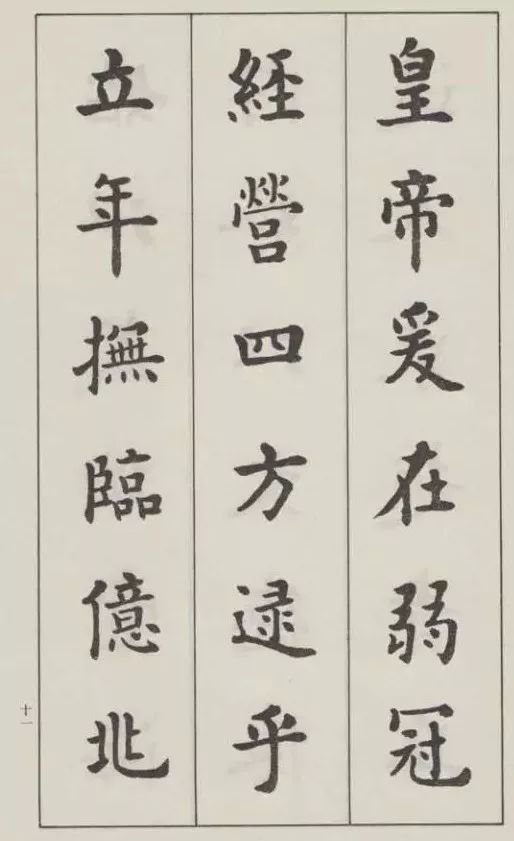 皇帝爰在弱冠
經營四方逯乎
立年撫臨億兆
十一